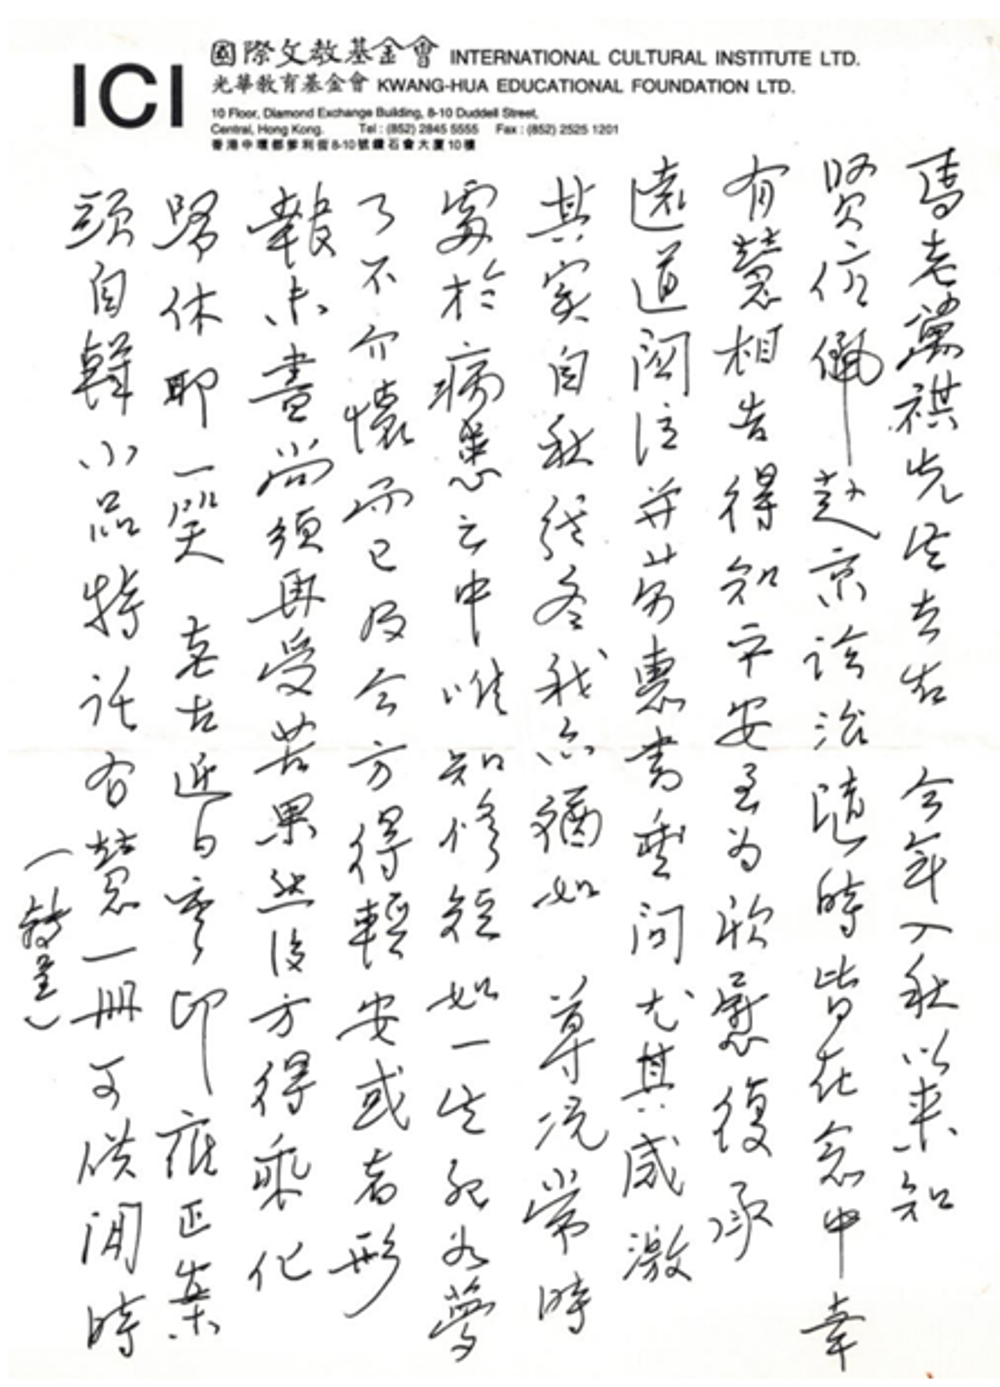 ICI
國際文教基金會 INTERNATIONAL CULTURAL INSTITUTE LTD.
光華教育基金會 KWANG-HUA EDUCATIONAL FOUNDATION LTD.
10 Floor, Diamond Exchange Building, 8-10 Duddell Street,
Central, Hong Kong. Tel : (852) 2845 5555 Fax : (852) 2525 1201
香港中環都爹利街8-10號鑽石會大廈10樓
馬老萬祺先生左右 今年入秋以來知
賢伉儷赴京診治隨時皆在念中幸
有慧相告得知平安至為欣慰復承
遠道關注並勞惠書垂問尤其感激
其實自秋徂冬我亦猶如 尊況常時
處於病患之中唯知修短如一生死如夢
了不介懷而已及今方得輕安或者形
報未盡尚須再受苦果然後方得乘化
歸休耶一笑 老古近日寄印雍正案
頭自輯小品特託有慧一冊可供閒時